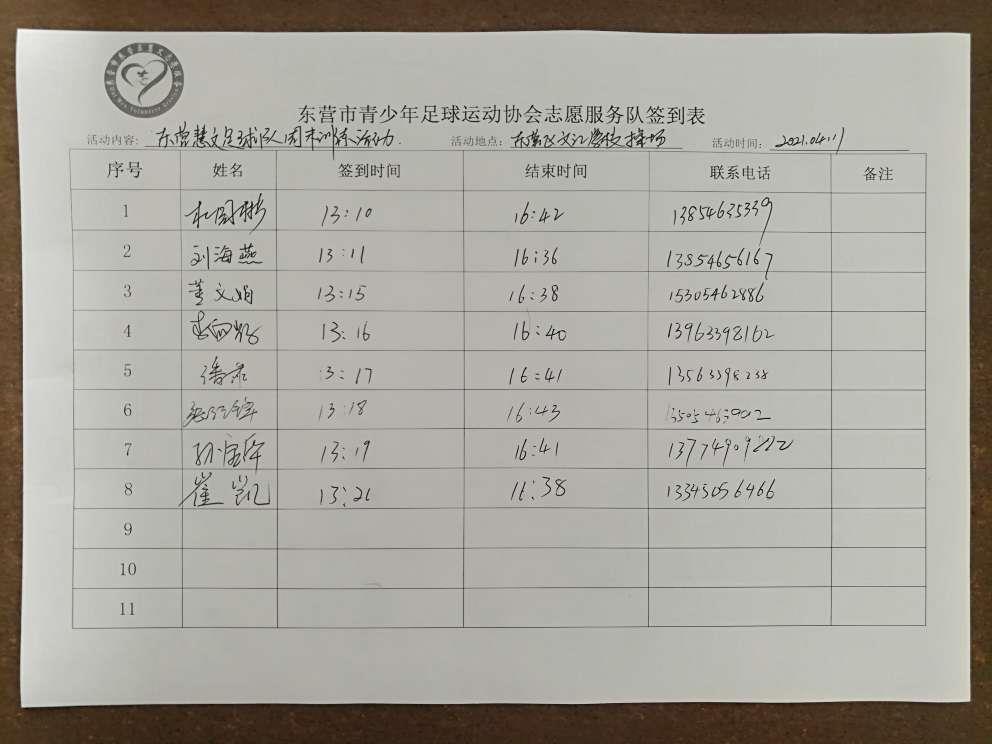 东营市青少年足球运动协会志愿服务队签到表
活动内容: 东营慧文足球队周末训练活动. 活动地点: 东营区文汇学校操场 活动时间: 2021.04.11
序号 姓名 签到时间 结束时间 联系电话 备注
1 杜国彬 13:10 16:42 13854635339
2 刘海燕 13:11 16:36 13854656167
3 董文娟 13:15 16:38 15305462886
4 13:16 16:40 13963398162
5 3:17 16:41 13563398238
6 13:18 16:43
7 13:19 16:41
8 崔凯 13:21 16:38 13345056466
9
10
11